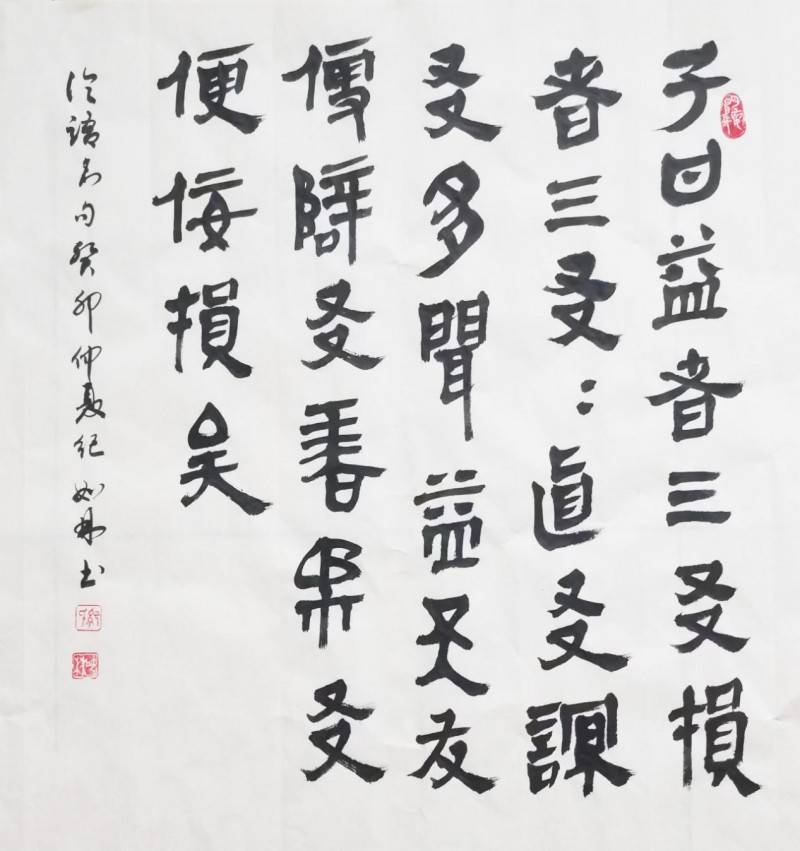 子曰益者三友損
者三友：直友諒
友多聞益矣友
便辟友善柔友
便佞損矣
论語名句癸卯仲夏纪书